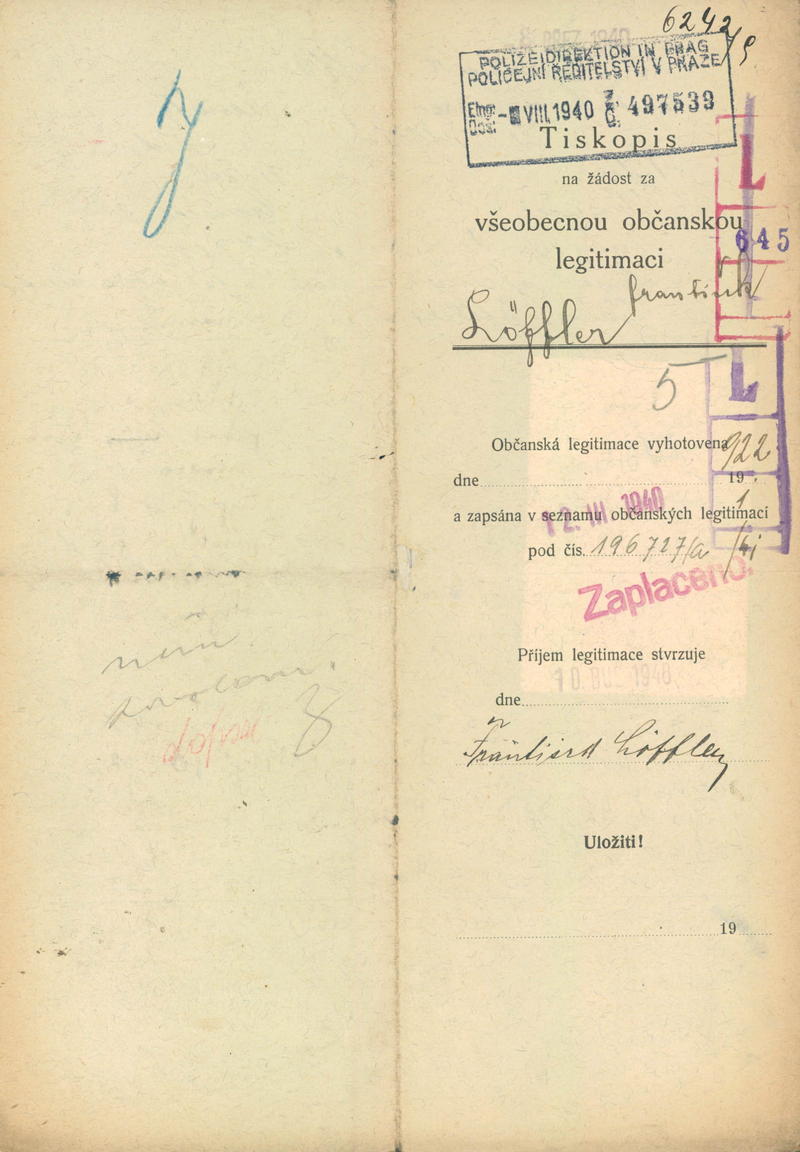 6242
POLIZEIDIREKTION IN PRAG
POLICEJNÍ ŘEDITELSTVÍ V PRAZE
VIII. 1940 497539
Tiskopis
na žádost za
všeobecnou občanskou
legitimaci
645
L
František
Löffler
5
L
Občanská legitimace vyhotovena
922
dne 19
1
a zapsána v seznamu občanských legitimací
12. III. 1940
pod čís. 196727/a
Zaplaceno.
Příjem legitimace stvrzuje
dne
František Löffler
Uložiti!
19
není
dopsu